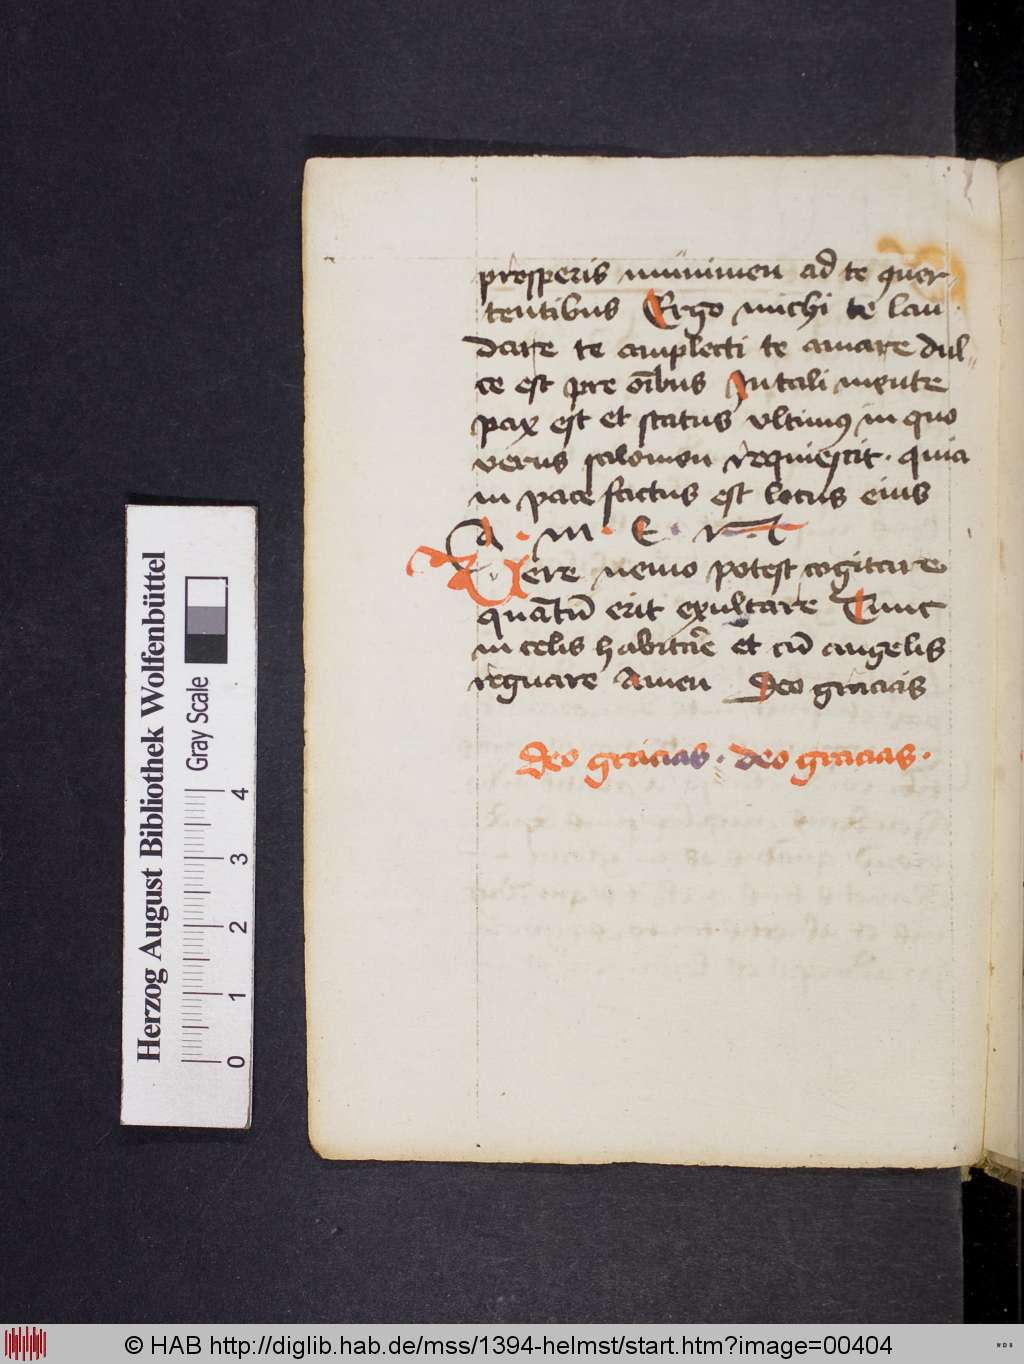 prosperis munimen ad te quer-
tentibus Ergo michi te lau
dare te amplecti te amare dul-
ce est pre oībus In tali mente
pax est et status vltimꝰ in quo
verus salomon requiescit · quia
in pace factus est locus eius
A · m · E · N ·
Vere nemo potest cogitare
quantū erit exultare Tunc
in celis habitare et cū angelis
regnare Amen Deo gracias
deo gracias · deo gracias ·
Herzog August Bibliothek Wolfenbüttel
Gray Scale
0 1 2 3 4
© HAB http://diglib.hab.de/mss/1394-helmst/start.htm?image=00404